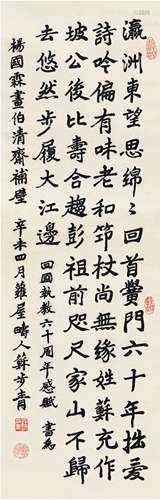 瀛洲東望思綿綿回首黌門六十年拙愛
詩吟偏有味老和筇杖尚無緣姓蘇充作
坡公後比壽合趨彭祖前咫尺家山不歸
去悠然步履大江邊 回國執教六十周年感賦 書為
楊國霖畫伯清齋補壁 辛未四月蘿屋疇人蘇步青